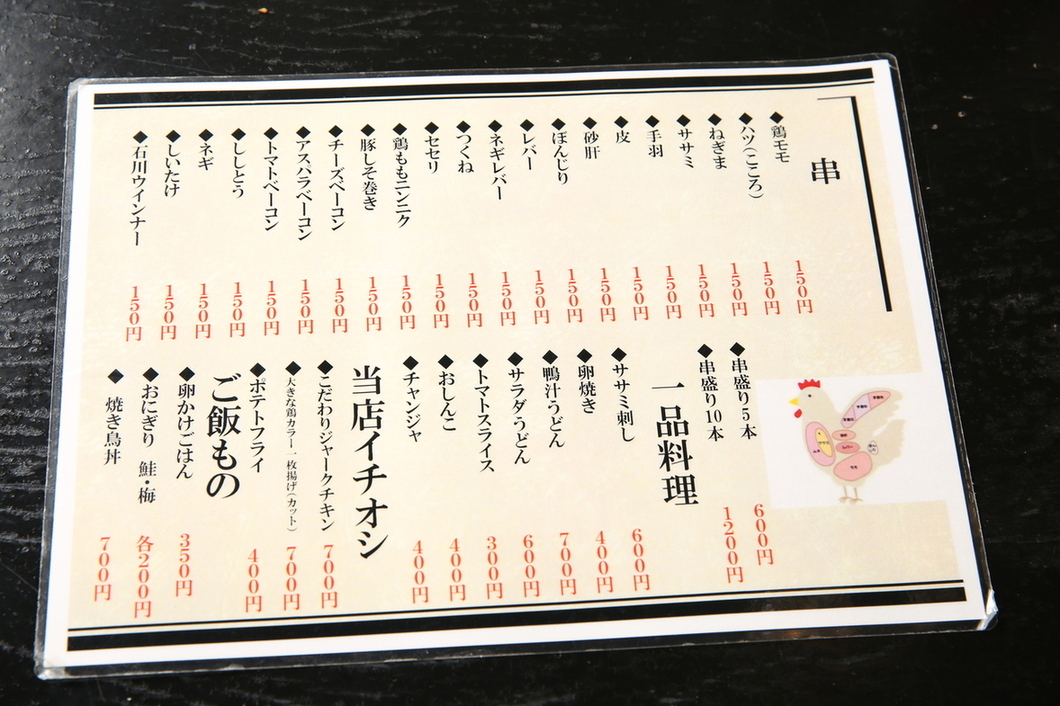 串
◆鶏モモ 150円
◆ハツ(こころ) 150円
◆ねぎま 150円
◆ササミ 150円
◆手羽 150円
◆皮 150円
◆砂肝 150円
◆ぼんじり 150円
◆レバー 150円
◆ネギレバー 150円
◆つくね 150円
◆セセリ 150円
◆鶏ももニンニク 150円
◆豚しそ巻き 150円
◆チーズベーコン 150円
◆アスパラベーコン 150円
◆トマトベーコン 150円
◆ししとう 150円
◆ネギ 150円
◆しいたけ 150円
◆石川ウインナー 150円
◆串盛り5本 600円
◆串盛り10本 1200円
一品料理
◆ササミ刺し 600円
◆卵焼き 400円
◆鴨汁うどん 700円
◆サラダうどん 600円
◆トマトスライス 300円
◆おしんこ 400円
◆チャンジャ 400円
当店イチオシ
◆こだわりジャークチキン 700円
◆大きな鶏カラー一枚揚げ(カット) 700円
◆ポテトフライ 400円
ご飯もの
◆卵かけごはん 350円
◆おにぎり 鮭・梅 各200円
◆ 焼き鳥丼 700円